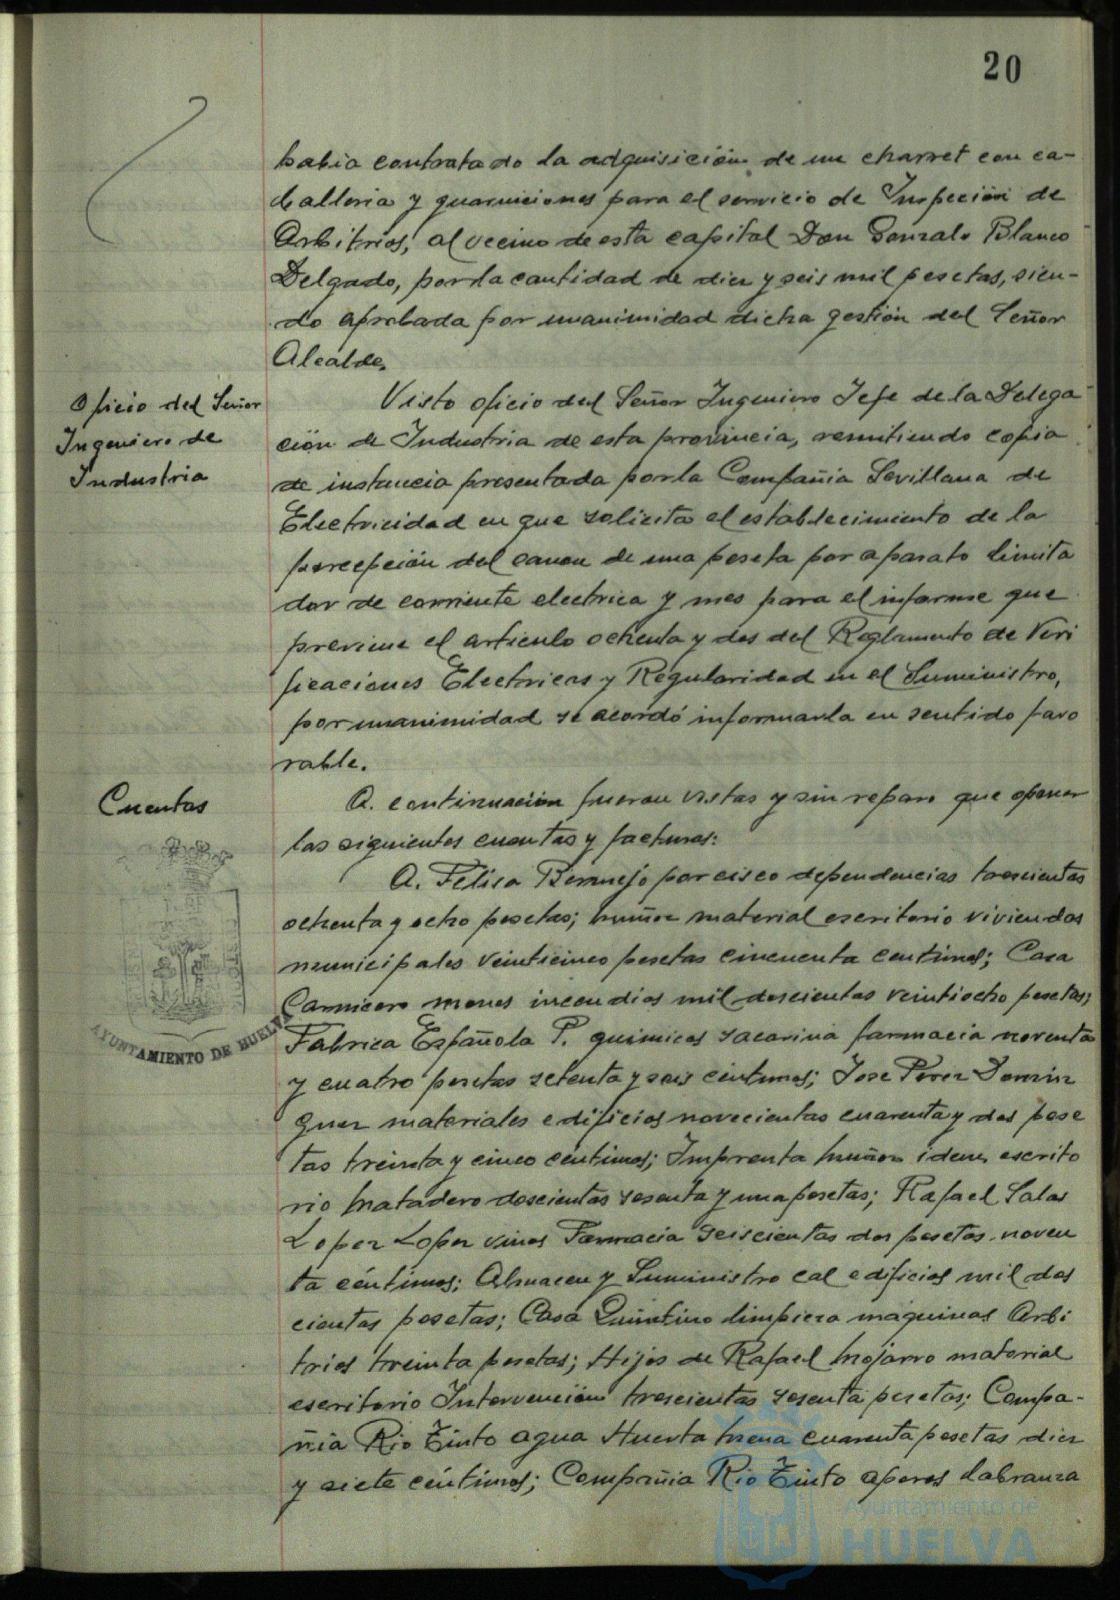 20
habia contratado la adquisición de un charret con ca-
balleria y guarniciones para el servicio de Inspección de
Arbitrios, al vecino de esta capital Don Gonzalo Blanco
Delgado, por la cantidad de diez y seis mil pesetas, sien-
do aprobada por unanimidad dicha gestión del Señor
Alcalde.
Oficio del Señor
Ingeniero de
Industria
Visto oficio del Señor Ingeniero Jefe de la Delega
ción de Industria de esta provincia, remitiendo copia
de instancia presentada por la Compañia Sevillana de
Electricidad en que solicita el establecimiento de la
percepción del canon de una peseta por aparato limita
dor de corriente electrica y mes para el informe que
previene el articulo ochenta y dos del Reglamento de Veri
ficaciones Electricas y Regularidad en el Suministro,
por unanimidad se acordó informarla en sentido favo
rable.
Cuentas
A continuación fueron vistas y sin reparo que oponer
las siguientes cuentas y facturas:
A. Felisa Bermejo por cisco dependencias trescientas
ochenta y ocho pesetas; Muñoz material escritorio viviendas
municipales veinticinco pesetas cincuenta centimos; Casa
Carnicero monos incendios mil doscientas veintiocho pesetas;
Fabrica Española P. quimicos sacarina farmacia noventa
y cuatro pesetas setenta y seis centimos; Jose Perez Domin
guez materiales edificios novecientas cuarenta y dos pese
tas treinta y cinco céntimos; Imprenta Muñoz idem escrito
rio Matadero doscientas sesenta y una pesetas; Rafael Salas
Lopez Lopez vinos Farmacia seiscientas dos pesetas noven
ta céntimos; Almacen y Suministro cal edificios mil dos
cientas pesetas; Casa Quintino limpieza máquinas Arbi
trios treinta pesetas; Hijos de Rafael Mojarro material
escritorio Intervención trescientas sesenta pesetas; Compa-
ñia Rio Tinto agua Huerta Mena cuarenta pesetas diez
y siete céntimos; Compañia Rio Tinto aperos labranza
AYUNTAMIENTO DE HUELVA
Ayuntamiento de
HUELVA